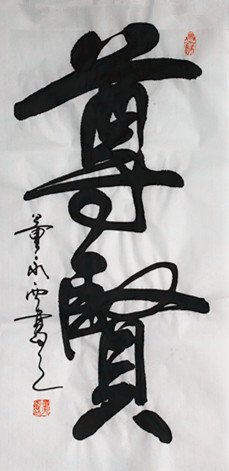 尊賢
董永西書之